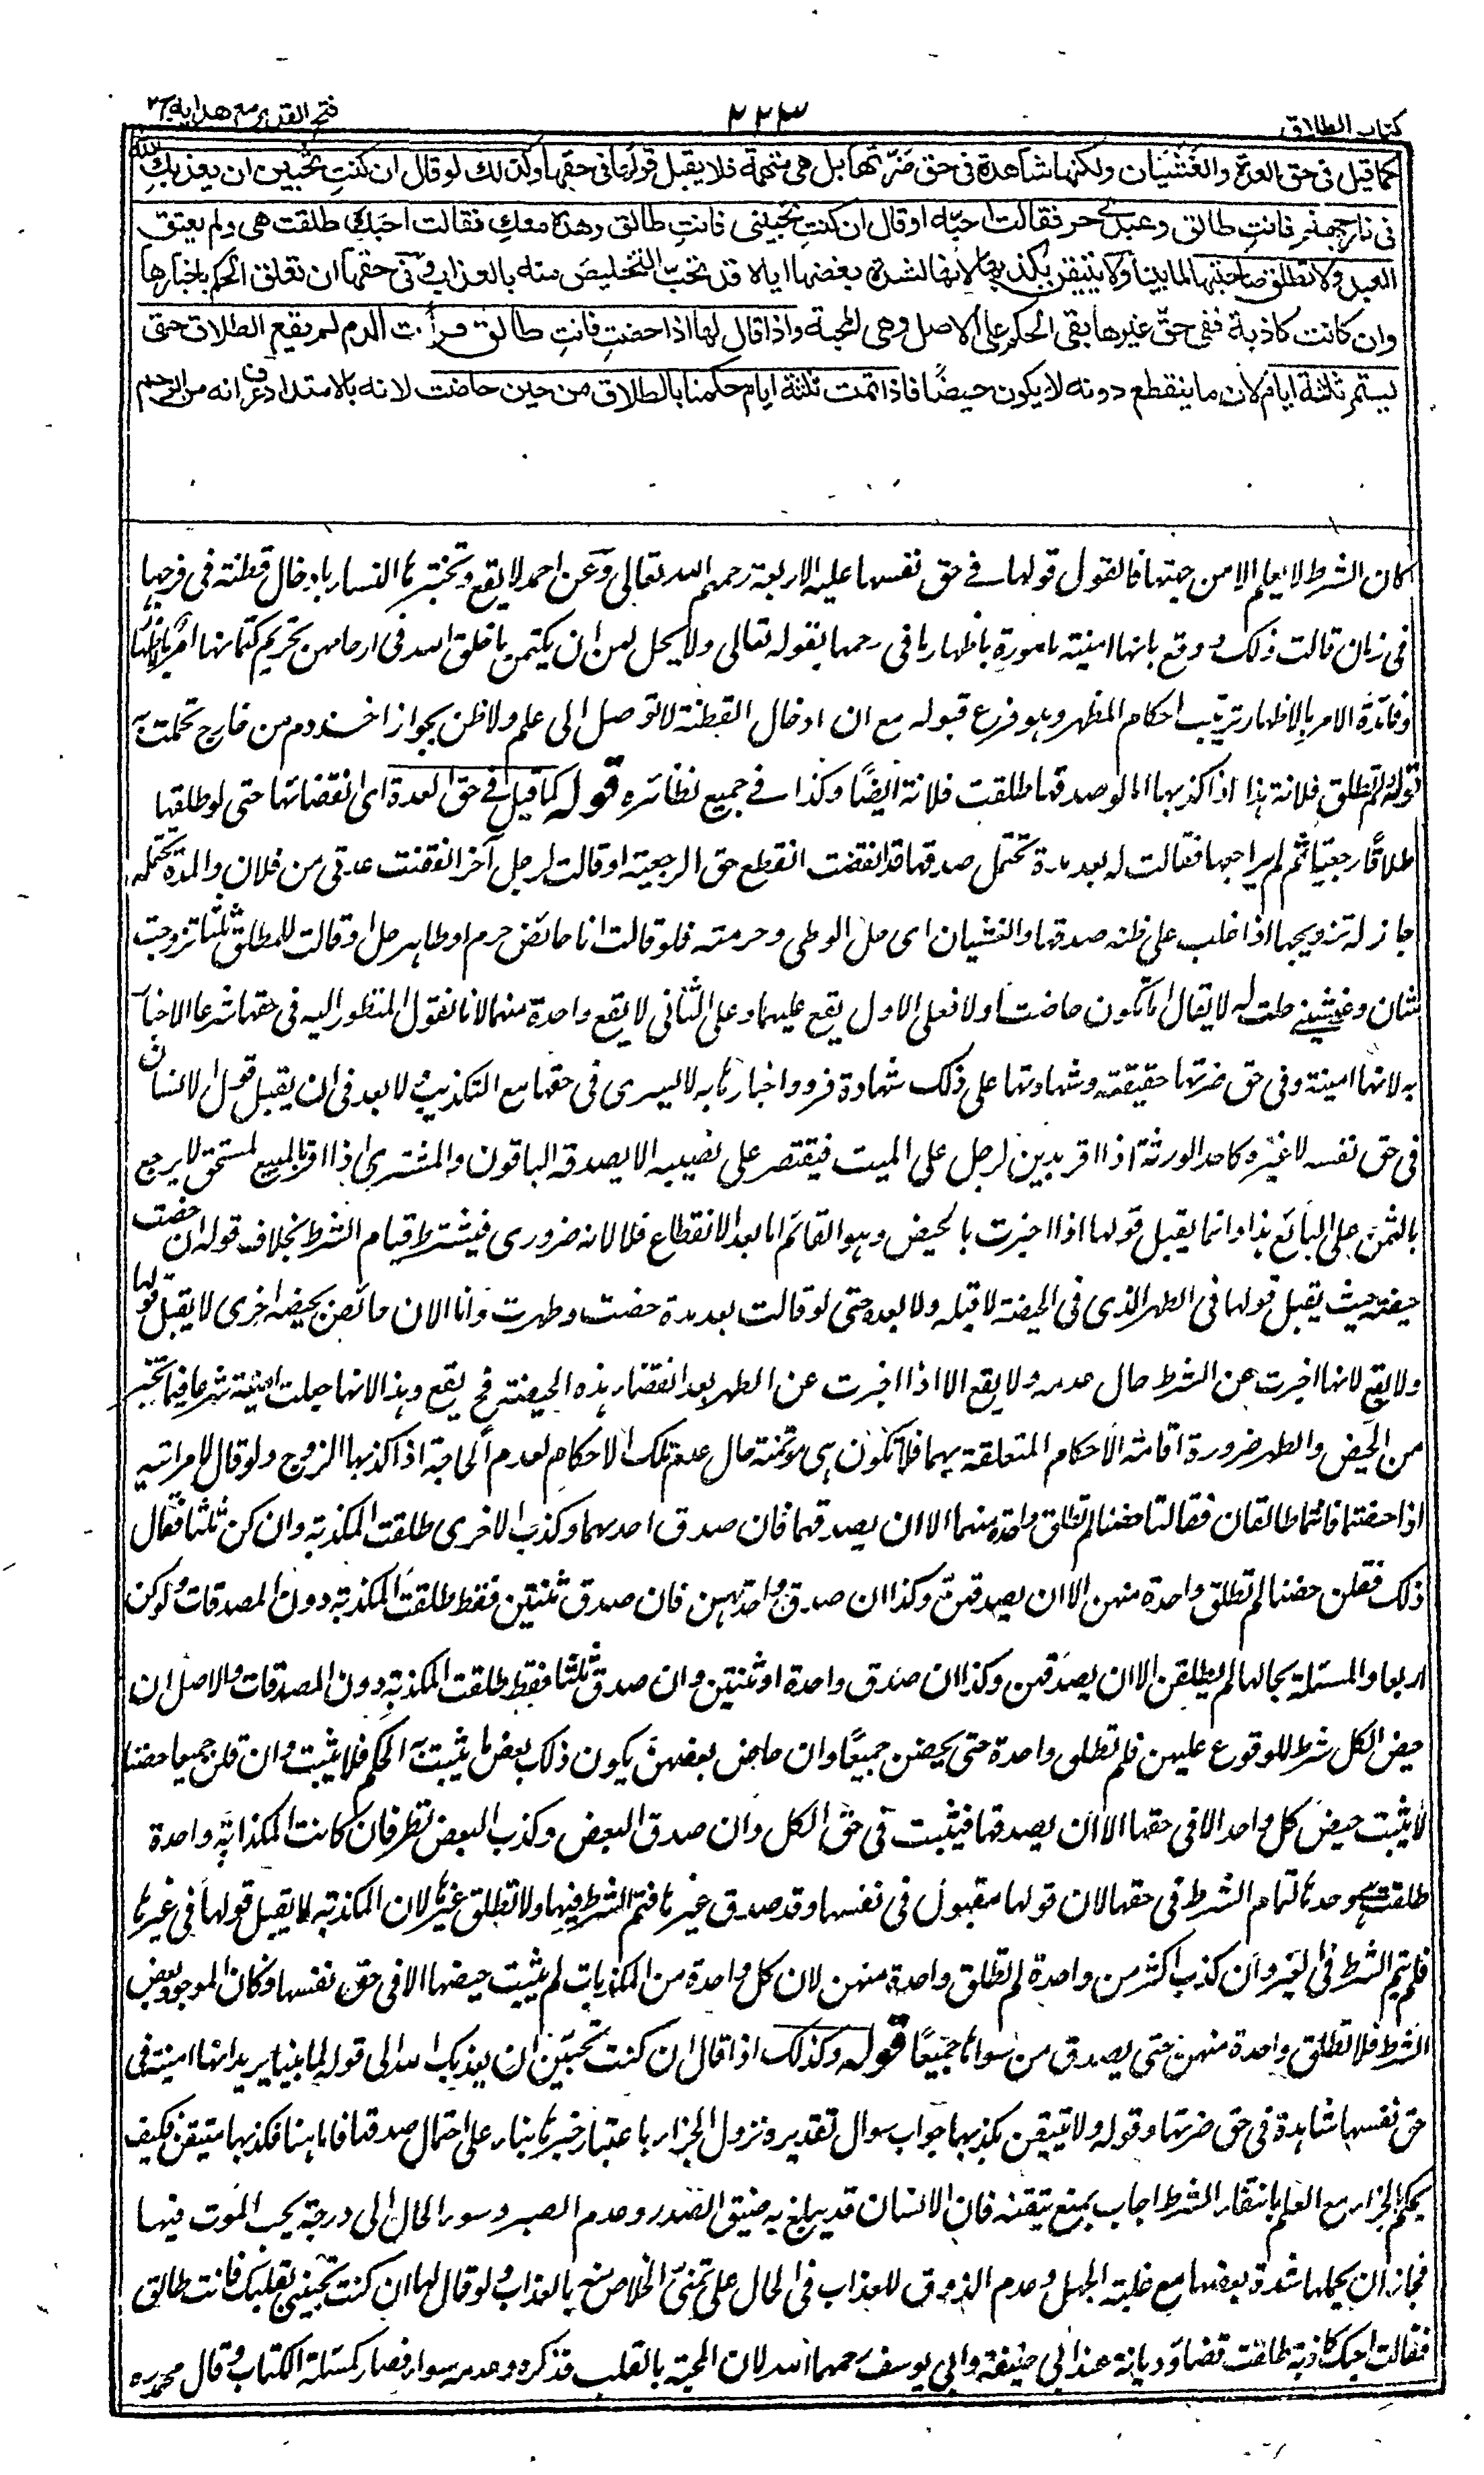 كتاب الطلاق
٢٢٣
فتح القدير مع هدايه ج٢
كما قيل فى حق العدة والغشيان ولكنها شاهدة فى حق ضرتها بل هى متهمة فلا يقبل قولها فى حقها وكذلك لو قال ان كنت تحبين ان يعذبك الله
فى نار جهنم فانت طالق وعبدى حر فقالت احبه او قال ان كنت تحبينى فانت طالق وهذه معك فقالت احبك طلقت هى ولم يعتق
العبد ولا تطلق صاحبتها لما بينا ولا يتيقن بكذبها لانها لشدة بغضها اياه قد تحب التخليص منه بالعذاب وفى حقها ان تعلق الحكم باخبارها
وان كانت كاذبة ففى حق غيرها بقى الحكم على الاصل وهى المحبة واذا قال لها اذا حضت فانت طالق فرأت الدم لم يقع الطلاق حتى
يستمر ثلثة ايام لان ما ينقطع دونه لا يكون حيضًا فاذا تمت ثلثة ايام حكمنا بالطلاق من حين حاضت لانه بالامتداد عرف انه من الرحم
كان الشرط لا يعلم الا من جهتها فالقول قولها فى حق نفسها عليه الاربعة رحمهم الله تعالى وعن احمد لا يقع وتختبرها النساء بادخال قطنة فى فرجها
فى زمان قالت ذلك ووقع بانها امينة مامورة باظهار ما فى رحمها بقوله تعالى ولا يحل لهن ان يكتمن ما خلق الله فى ارحامهن تحريم كتمانها امر باظهارها
وفائدة الامر بالاظهار ترتيب احكام المظهر وهو فرع قبوله مع ان ادخال القطنة لا توصل الى علم ولا ظن بجواز اخذ دم من خارج تحملت به
قوله لم تطلق فلانة هذا اذا كذبها اما لو صدقها طلقت فلانة ايضًا وكذا فى جميع نظائره قوله كما قيل فى حق العدة اى انقضائها حتى لو طلقها
طلاقًا رجعيًا ثم لم يراجعها فقالت له بعد مدة تحتمل صدقها قد انقضت انقطع حق الرجعية او قالت لرجل آخر انقضت عدتى من فلان والمدة تحتمله
جاز له تزويجها اذا غلب على ظنه صدقها والغشيان اى حل الوطى وحرمته فلو قالت انا حائض حرم او طاهر حل او قالت للمطلق ثلثا تزوجت
بثان وغشينى حلت له لا يقال اما تكون حاضت او لا فعلى الاول يقع عليهما وعلى الثانى لا يقع واحدة منهما لانا نقول المنظور اليه فى حقها شرعا الاخبار
به لانها امينة وفى حق ضرتها حقيقته وشهادتها على ذلك شهادة فرد واخبارها به لا يسرى فى حقها مع التكذيب ولا بعد فى ان يقبل قول الانسان
فى حق نفسه لا غيره كاحد الورثة اذا اقر بدين لرجل على الميت فيقتصر على نصيبه الا يصدقه الباقون والمشترى اذا اقر بالمبيع لمستحق لا يرجع
بالثمن على البائع هذا وانما يقبل قولها اذا اخبرت بالحيض وهو القائم اما بعد الانقطاع فلا لانه ضرورى فيشترط قيام الشرط بخلاف قوله ان حضت
حيضة حيث يقبل قولها فى الطهر الذى فى الحيضة لا قبله ولا بعده حتى لو قالت بعد مدة حضت وطهرت وانا الان حائض بحيضة اخرى لا يقبل قولها
ولا يقع لانها اخبرت عن الشرط حال عدمه ولا يقع الا اذا اخبرت عن الطهر بعد انقضاء هذه الحيضة فح يقع وهذا لانها جعلت امينة شرعا فيما تخبر
من الحيض والطهر ضرورة اقامة الاحكام المتعلقة بهما فلا تكون هى مؤتمنة حال عدم تلك الاحكام لعدم الحاجة اذا كذبها الزوج ولو قال لامراتيه
اذا حضتما فانتما طالقان فقالتا حضنا لم تطلق واحدة منهما الا ان يصدقهما فان صدق احديهما وكذب الاخرى طلقت المكذبة وان كن ثلثا فقال
ذلك فقلن حضنا لم تطلق واحدة منهن الا ان يصدقهن وكذا ان صدق واحدتهن فان صدق ثنتين فقط طلقت المكذبة دون المصدقات ولو كن
اربعا والمسئلة بحالها لم يطلقن الا ان يصدقهن وكذا ان صدق واحدة او ثنتين وان صدق ثلثا فقط طلقت المكذبة دون المصدقات والاصل ان
حيض الكل شرط للوقوع عليهن فلم تطلق واحدة حتى يحضن جميعًا وان حاض بعضهن يكون ذلك بعض ما يثبت به الحكم فلا يثبت وان قلن جميعا حضنا
لا يثبت حيض كل واحد الا فى حقها الا ان يصدقها فيثبت فى حق الكل وان صدق البعض وكذب البعض نظر فان كانت المكذبة واحدة
طلقت هى وحدها لتمام الشرط فى حقها لان قولها مقبول فى نفسها وقد صدق غيرها فتم الشرط فيها ولا تطلق غيرها لان المكذبة لا يقبل قولها فى غيرها
فلم يتم الشرط فى الغير وان كذب اكثر من واحدة لم تطلق واحدة منهن لان كل واحدة من المكذبات لم يثبت حيضها الا فى حق نفسها وكان الموجود بعض
الشرط فلا تطلق واحدة منهن حتى يصدق من سواها جميعًا قوله وكذلك اذا قال ان كنت تحبين ان يعذبك الله الى قوله لما بينا يريد انها امينة فى
حق نفسها شاهدة فى حق ضرتها وقوله ولا يتيقن بكذبها جواب سوال تقديره نزول الجزاء باعتبار خبرها بناء على احتمال صدقها فاما هنا فكذبها متيقن فكيف
يحكم بالجزاء مع العلم بانتفاء الشرط اجاب بمنع تيقنه فان الانسان قد يبلغ به ضيق الصدر وعدم الصبر وسوء الحال الى درجة يحب الموت فيها
فجاز ان يحملها شدة بغضها مع غلبة الجهل وعدم الذوق للعذاب فى الحال على تمنى الخلاص منه بالعذاب ولو قال لها ان كنت تحبينى بقلبك فانت طالق
فقالت احبك كاذبة طلقت قضاء وديانة عند ابى حنيفة وابى يوسف رحمهما الله لان المحبة بالقلب فذكره وعدمه سواء فصار كمسئلة الكتاب وقال محمد ره